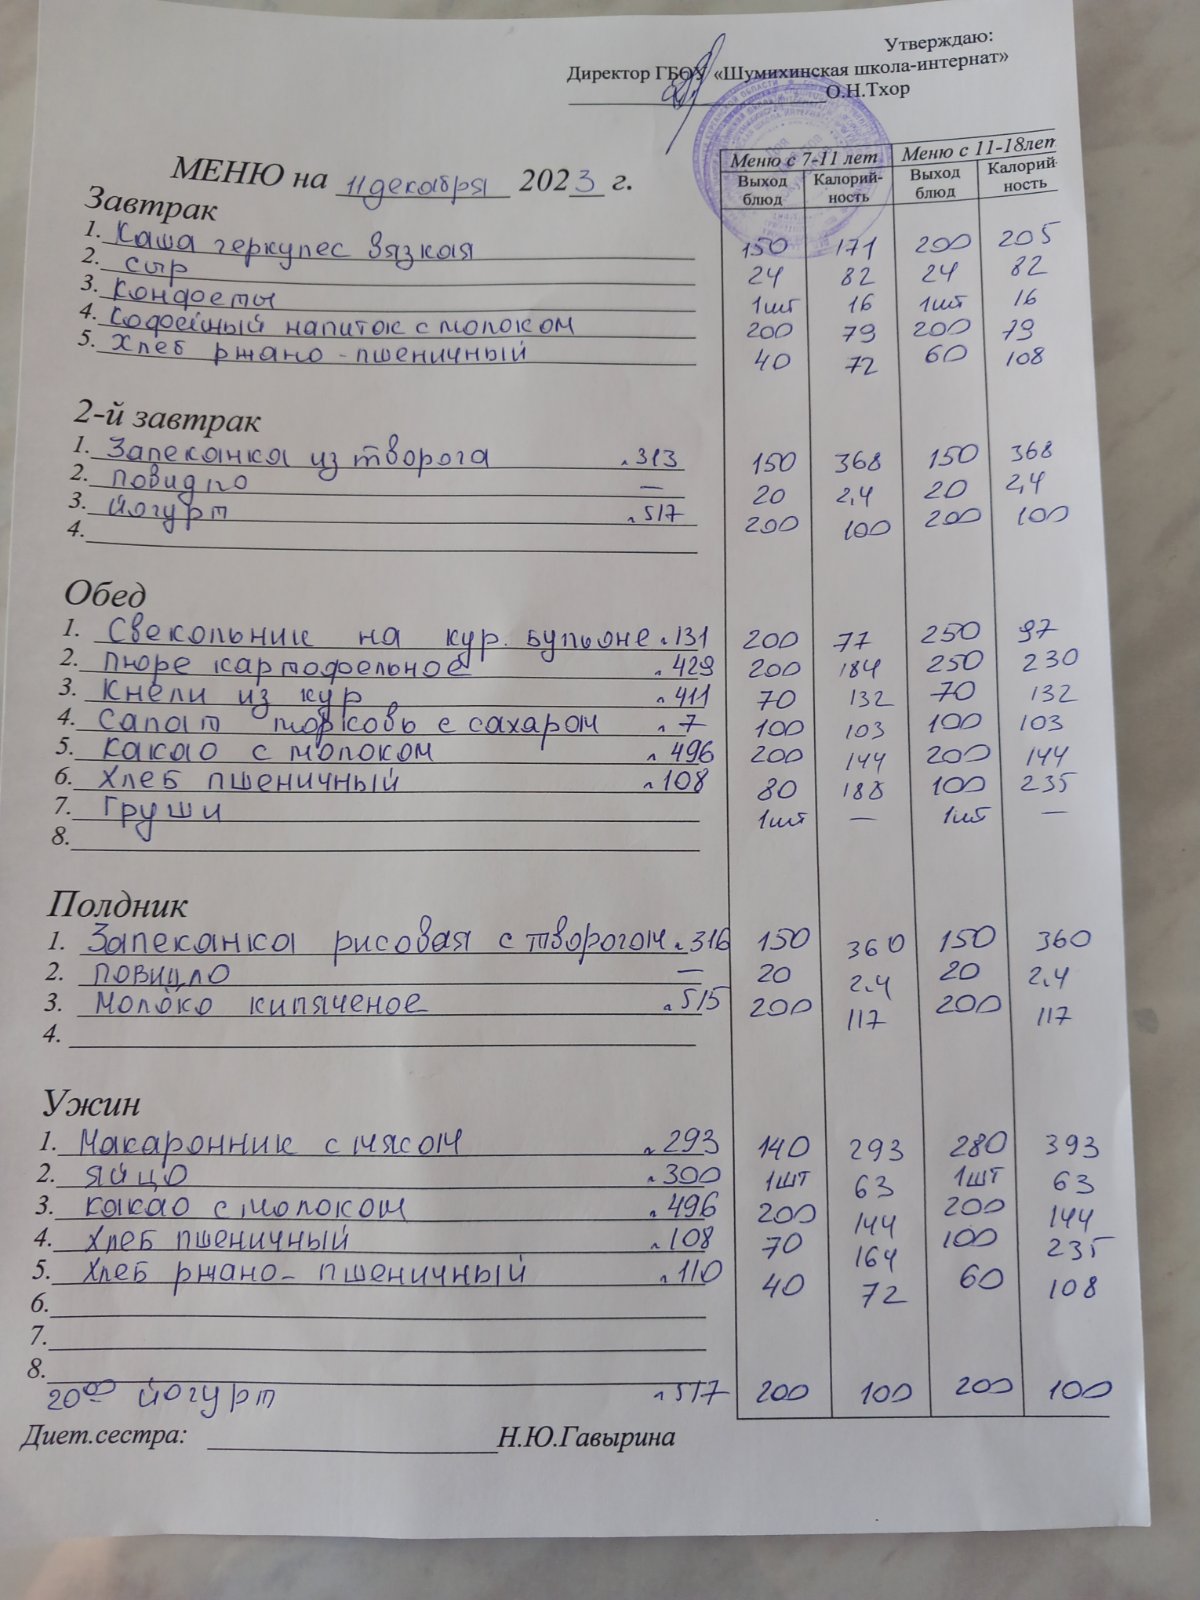 Утверждаю:
Директор ГБОУ «Шумихинская школа-интернат»
О.Н.Тхор
МЕНЮ на 11 декабря 2023 г.
Меню с 7-11 лет Меню с 11-18лет
Выход блюд Калорий-ность Выход блюд Калорий-ность
Завтрак
1. Каша геркулес вязкая 150 171 200 205
2. Сыр 24 82 24 82
3. Конфеты 1шт 16 1шт 16
4. Кофейный напиток с молоком 200 79 200 79
5. Хлеб ржано-пшеничный 40 72 60 108
2-й завтрак
1. Запеканка из творога л.313 150 368 150 368
2. Повидло — 20 2,4 20 2,4
3. Йогурт л.517 200 100 200 100
4.
Обед
1. Свекольник на кур. бульоне л.131 200 77 250 97
2. Пюре картофельное л.429 200 184 250 230
3. Кнели из кур л.411 70 132 70 132
4. Салат морковь с сахаром л.7 100 103 100 103
5. Какао с молоком л.496 200 144 200 144
6. Хлеб пшеничный л.108 80 188 100 235
7. Груши 1шт — 1шт —
8.
Полдник
1. Запеканка рисовая с творогом л.316 150 360 150 360
2. Повидло — 20 2.4 20 2.4
3. Молоко кипяченое л.515 200 117 200 117
4.
Ужин
1. Макаронник с мясом л.293 140 293 280 393
2. Яйцо л.300 1шт 63 1шт 63
3. Какао с молоком л.496 200 144 200 144
4. Хлеб пшеничный л.108 70 164 100 235
5. Хлеб ржано-пшеничный л.110 40 72 60 108
6.
7.
8.
20⁰⁰ Йогурт л.517 200 100 200 100
Диет.сестра: Н.Ю.Гавырина